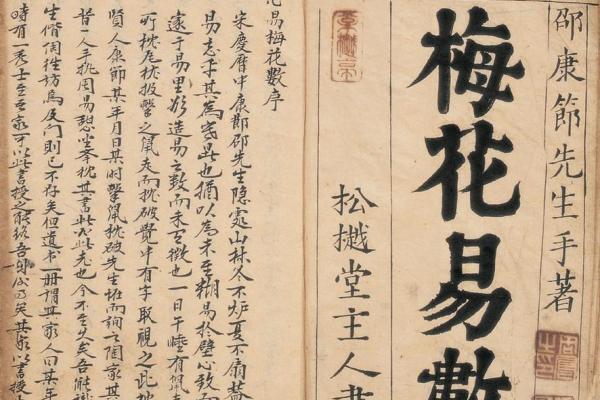 邵康節先生手著
梅花易數
松樾堂主人
易梅花數序
宋慶曆中康節邵先生隐處山林冬不炉夏不扇蓋
易忘乎其為寒暑也猶以為未至糊易於壁心致而
遂于易里欲造易之数而未有徵也一日午睡有鼠走
所枕瓦枕投擊之鼠走而枕破覺中有字取視之此枕
賢人康節某年月日某時擊鼠枕破先生怪而詢之陶家其
昔一人手执周易憩坐奉枕其書此必此老也今不至久矣吾能識
生偕陶往訪焉及門則已不存矣但遺书一册謂其家人曰某年
時有一秀士至吾家可以此書授之能終吾身矣其家以書授